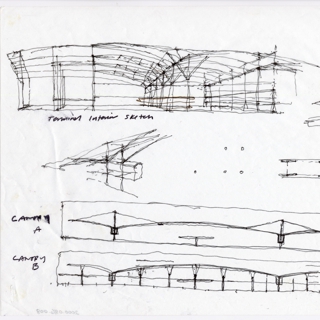 Terminal Interior Sketch
CANOPY
A
CANOPY
B